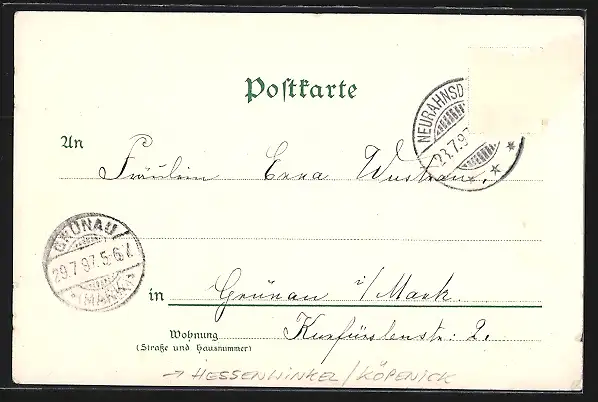 Postkarte
NEURAHNSD
23.7.97
An
Fräulein Erna
GRÜNAU
29.7.97.5-6N.
(MARK)
in
Grünau i/Mark.
Wohnung
Kurfürstenstr: 2.
(Straße und Hausnummer)
→ HESSENWINKEL/KÖPENICK